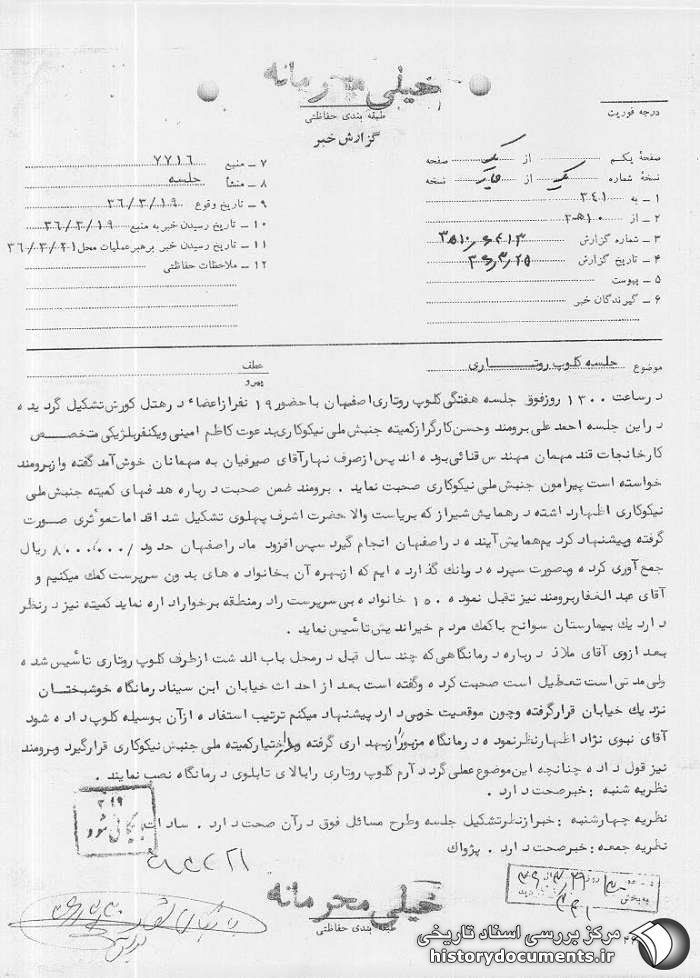 خیلی محرمانه
طبقه بندی حفاظتی
گزارش خبر
درجه فوریت
صفحهٔ یکم از یک صفحه
نسخهٔ شماره یک از نسخه
۱ ـ به ۳۴۱
۲ ـ از
۳ ـ شماره گزارش
۴ ـ تاریخ گزارش ۳۶٫۳٫۲۵
۵ ـ پیوست
۶ ـ گیرندگان خبر
۷ ـ منبع ۷۷۱۶
۸ ـ منشأ جلسه
۹ ـ تاریخ وقوع ۳۶/۳/۱۹
۱۰ ـ تاریخ رسیدن خبر به منبع ۳۶/۳/۱۹
۱۱ ـ تاریخ رسیدن خبر برهبر عملیات محل ۳۶/۳/۲۱
۱۲ ـ ملاحظات حفاظتی
موضوع جلسه کلوپ روتاری
عطف
پیرو
در ساعت ۱۳۰۰ روز فوق جلسه هفتگی کلوپ روتاری اصفهان با حضور ۱۹ نفر از اعضاء در هتل کورش تشکیل گردیده
در این جلسه احمد علی برومند و حسن کارگر از کمیته جنبش ملی نیکوکاری بدعوت کاظم امینی و یکنفر بلژیکی متخصص
کارخانجات قند مهمان مهندس قنائی بوده اند پس از صرف نهار آقای صیرفیان به مهمانان خوش آمد گفته و از برومند
خواسته است پیرامون جنبش ملی نیکوکاری صحبت نماید . برومند ضمن صحبت درباره هدفهای کمیته جنبش ملی
نیکوکاری اظهار داشته در همایش شیراز که بریاست والا حضرت اشرف پهلوی تشکیل شد اقدامات مؤثری صورت
گرفته و پیشنهاد کردیم همایش آینده در اصفهان انجام گیرد سپس افزود مادر اصفهان حدود ۸۰۰۰/۰۰۰/ ریال
جمع آوری کرده و بصورت سپرده در بانک گذارده ایم که از بهره آن بخانواده های بدون سرپرست کمک میکنیم و
آقای عبدالغفار برومند نیز تقبل نموده ۱۵۰ خانواده بی سرپرست را در منطقه برخوار اداره نماید کمیته نیز در نظر
دارد یک بیمارستان سوانح با کمک مردم خیراندیش تأسیس نماید .
بعد از وی آقای ملاذ درباره درمانگاهی که چند سال قبل در محل باب الدشت از طرف کلوپ روتاری تأسیس شده
ولی مدتی است تعطیل است صحبت کرده و گفته است بعد از احداث خیابان ابن سینا درمانگاه خوشبختان
نزدیک خیابان قرار گرفته و چون موقعیت خوبی دارد پیشنهاد میکنم ترتیب استفاده از آن بوسیله کلوپ داده شود
آقای نبوی نژاد اظهار نظر نموده درمانگاه مزبور از بهداری گرفته و در اختیار کمیته ملی جنبش نیکوکاری قرار گیرد و برومند
نیز قول داده چنانچه این موضوع عملی گردد آرم کلوپ روتاری را بالای تابلوی درمانگاه نصب نمایند .
نظریه شنبه : خبر صحت دارد .
نظریه چهارشنبه : خبر از نظر تشکیل جلسه و طرح مسائل فوق در آن صحت دارد . سادات
نظریه جمعه : خبر صحت دارد . پژواک
بایگانی شود
خیلی محرمانه
طبقه بندی حفاظتی
مرکز بررسی اسناد تاریخی
historydocuments.ir